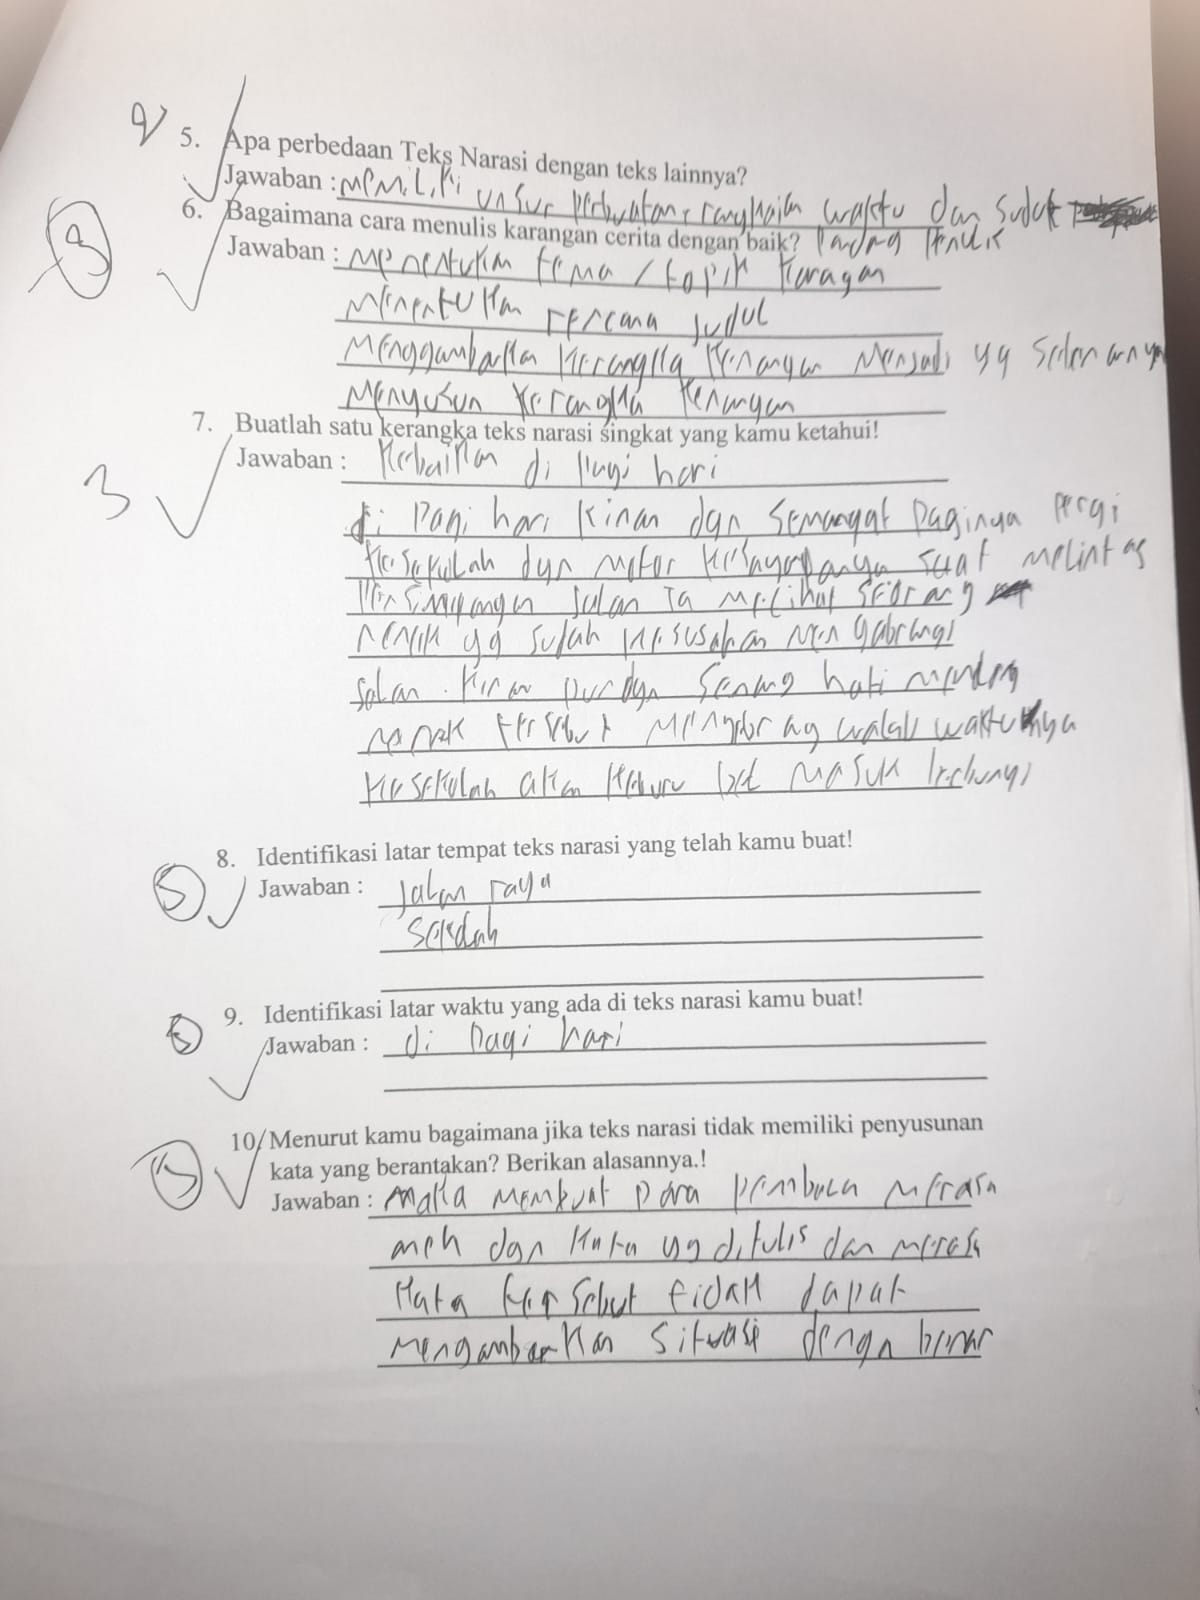 5. Apa perbedaan Teks Narasi dengan teks lainnya?
Jawaban : Memiliki unsur perbuatan, rangkaian waktu dan sudut
Pandang Penulis
6. Bagaimana cara menulis karangan cerita dengan baik?
Jawaban : Menentukan tema / topik karagan
Menentukan rencana judul
Menggambarkan kerangka karangan Menjadi yg sebenarnya
Menyusun kerangka karangan
3
7. Buatlah satu kerangka teks narasi singkat yang kamu ketahui!
Jawaban : Kebaikan di pagi hari
di Pagi hari Kinan dgn Semangat Paginya Pergi
kesekolah dgn motor kesayangannya saat melintas
Persimpangan Jalan Ia melihat seorang
nenek yg sudah kesusahan menyabrangi
Jalan. Kinan pun dgn Senang hati
nenek tersebut menyebrang walau waktunya
kesekolah akan keburu bel Masuk berbunyi
5
8. Identifikasi latar tempat teks narasi yang telah kamu buat!
Jawaban : Jalan raya
Sekolah
5
9. Identifikasi latar waktu yang ada di teks narasi kamu buat!
Jawaban : di Pagi hari
10. Menurut kamu bagaimana jika teks narasi tidak memiliki penyusunan
kata yang berantakan? Berikan alasannya.!
Jawaban : Maka Membuat Para Pembaca Merasa
aneh dgn Kata yg ditulis dan merasa
Kata tersebut tidak dapat
Mengambarkan Situasi dengan benar